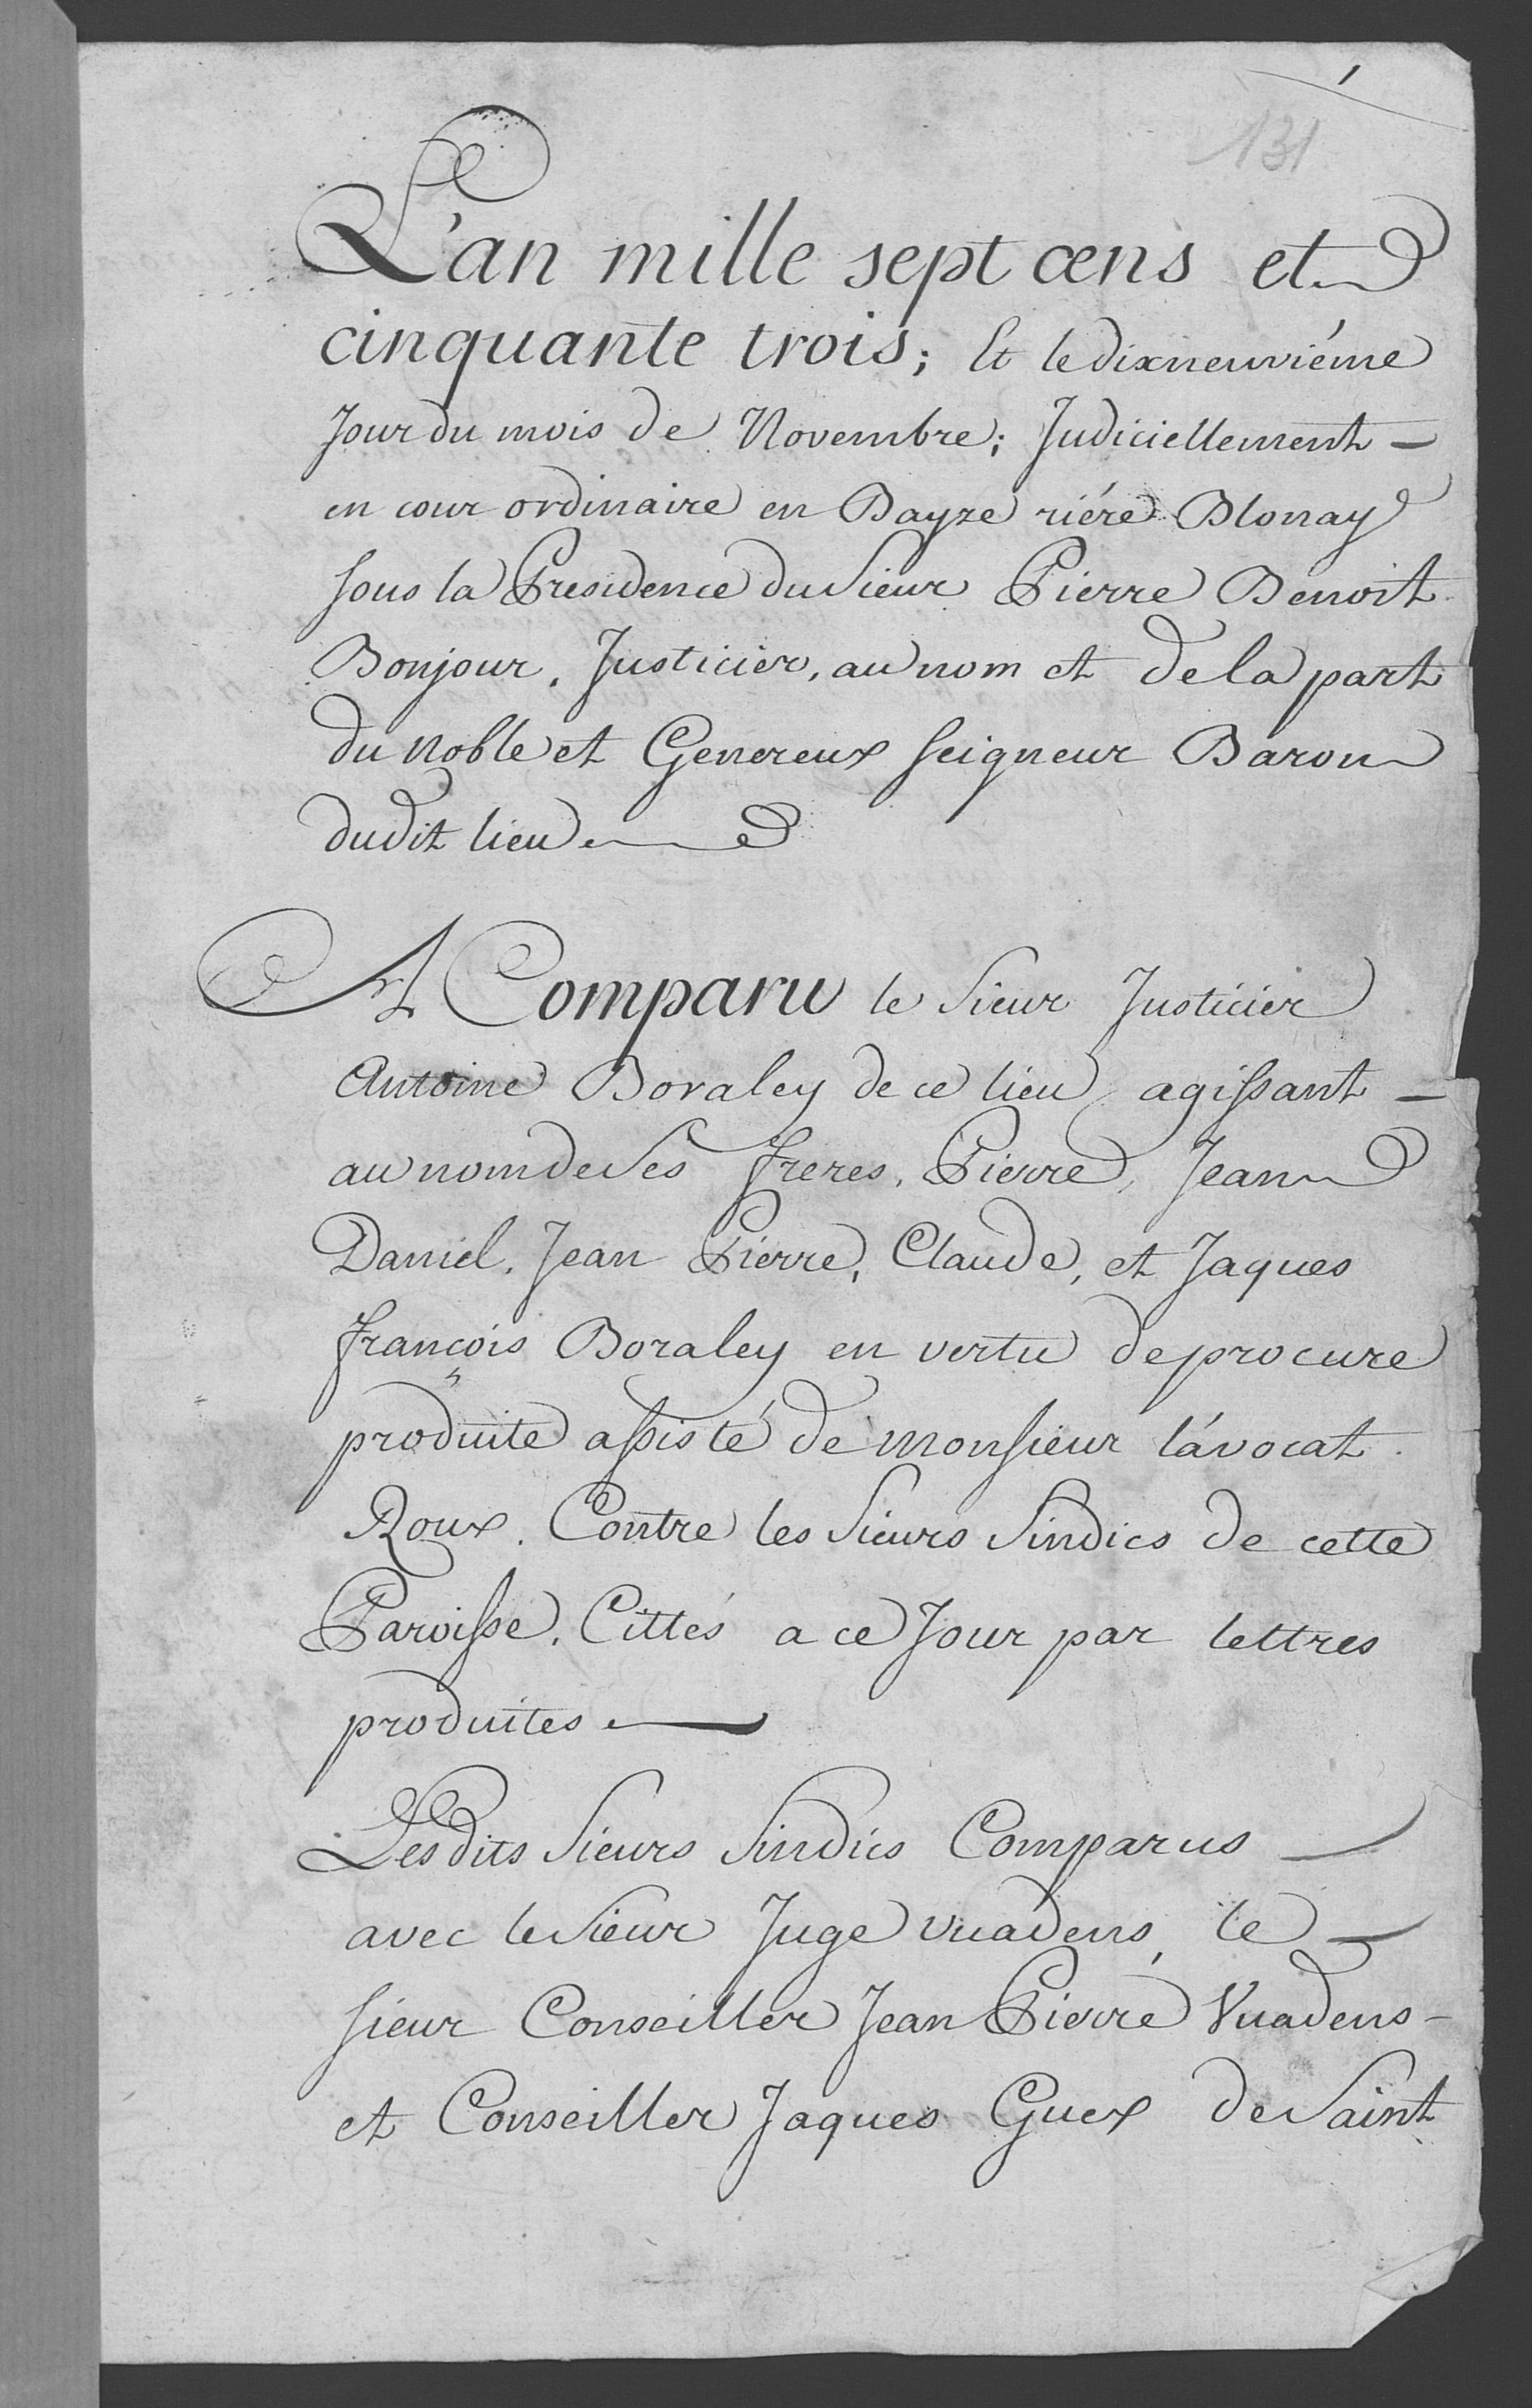 1
131
L'an mille sept cens et
cinquante trois; Et le dixneuviéme
Jour du mois de Novembre; Judiciellement
en cour ordinaire en Bayze riére Blonay
sous la Presidence du Sieur Pierre Benoit
Bonjour, Justicier, au nom et de la part
du noble et Genereux seigneur Baron
dudit lieu
A Comparu le Sieur Justicier
Antoine Boraley de ce lieu agissant
au nom de ses freres, Pierre, Jean
Daniel, Jean Pierre, Claude, et Jaques
françois Boraley en vertu de procure
produite assisté de monsieur l'avocat
Roux. Contre les Sieurs Sindics de cette
Paroisse, Cittés a ce Jour par lettres
produites
Lesdits Sieurs Sindics Comparus
avec le Sieur Juge Vuadens, le
sieur Conseiller Jean Pierre Vuadens
et Conseiller Jaques Guex de Saint